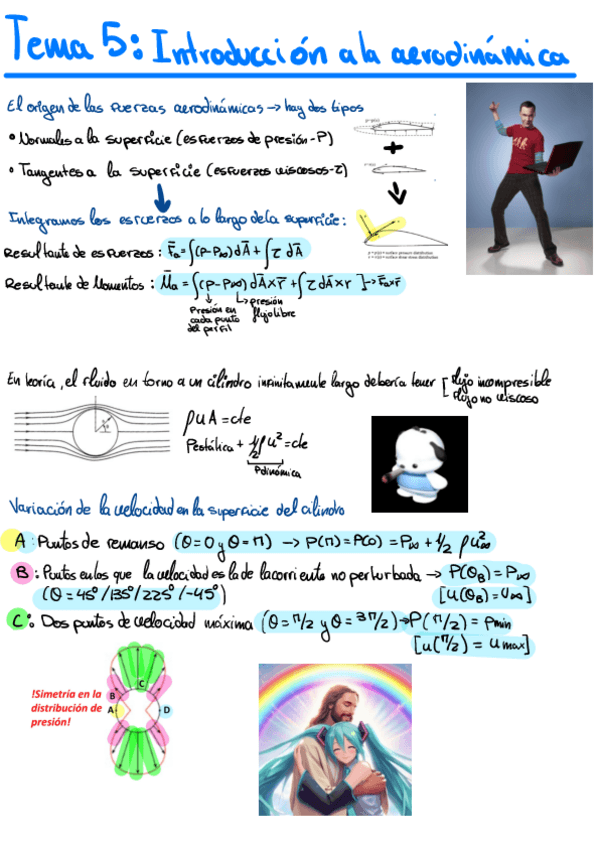 Tema 5: Introducción a la aerodinámica
El origen de las fuerzas aerodinámicas → hay dos tipos
• Normales a la superficie (esfuerzos de presión-P)
• Tangentes a la superficie (esfuerzos viscosos-τ)
+
Integramos los esfuerzos a lo largo de la superficie:
Resultante de esfuerzos: F̄a = ∫(P-P∞)dĀ + ∫τ dĀ
Resultante de Momentos: M̄a = ∫(P-P∞)dĀ×r̄ + ∫τ dĀ×r ]→ F̄a×r̄
Presión en cada punto del perfil
presión flujo libre
En teoría, el fluido en torno a un cilindro infinitamente largo debería tener [ flujo incompresible
flujo no viscoso
ρuA = cte
Pestática + 1/2 ρu² = cte
Pdinámica
Variación de la velocidad en la superficie del cilindro
A: Puntos de remanso (θ=0 y θ=π) → P(π)=P(0) = P∞ + 1/2 ρu²∞
B: Puntos en los que la velocidad es la de la corriente no perturbada → P(θB) = P∞
(θ = 45°/135°/225°/-45°) [u(θB) = u∞]
C: Dos puntos de velocidad máxima (θ=π/2 y θ=3π/2) → P(π/2) = Pmin
[u(π/2) = umax]
!Simetría en la
distribución de
presión!
C
B
A
D